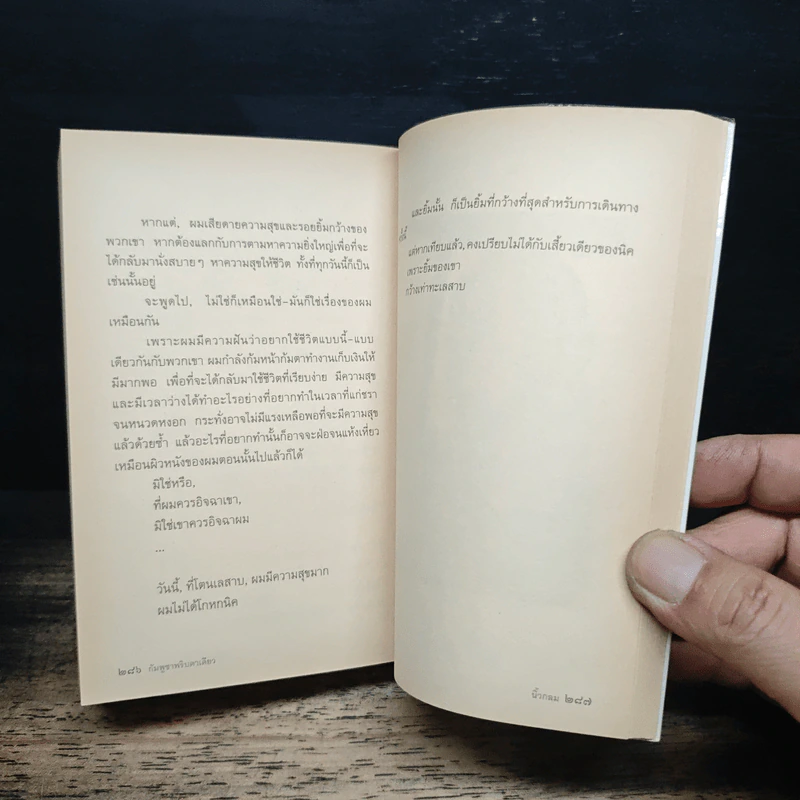 หากแต่, ผมเสียดายความสุขและรอยยิ้มกว้างของ
พวกเขา หากต้องแลกกับการตามหาความยิ่งใหญ่เพื่อที่จะ
ได้กลับมานั่งสบายๆ หาความสุขให้ชีวิต ทั้งที่ทุกวันนี้ก็เป็น
เช่นนั้นอยู่
จะพูดไป, ไม่ใช่ก็เหมือนใช่–มันก็ใช่เรื่องของผม
เหมือนกัน
เพราะผมมีความฝันว่าอยากใช้ชีวิตแบบนี้–แบบ
เดียวกันกับพวกเขา ผมกำลังก้มหน้าก้มตาทำงานเก็บเงินให้
มีมากพอ เพื่อที่จะได้กลับมาใช้ชีวิตที่เรียบง่าย มีความสุข
และมีเวลาว่างได้ทำอะไรอย่างที่อยากทำในเวลาที่แก่ชรา
จนหนวดหงอก กระทั่งอาจไม่มีแรงเหลือพอที่จะมีความสุข
แล้วด้วยซ้ำ แล้วอะไรที่อยากทำนั้นก็อาจจะฝ่อจนแห้งเหี่ยว
เหมือนผิวหนังของผมตอนนั้นไปแล้วก็ได้
มิใช่หรือ,
ที่ผมควรอิจฉาเขา,
มิใช่เขาควรอิจฉาผม
...
วันนี้, ที่โตนเลสาบ, ผมมีความสุขมาก
ผมไม่ได้โกหกนิค
๒๘๖ กัมพูชาพริบตาเดียว
และยิ้มนั้น ก็เป็นยิ้มที่กว้างที่สุดสำหรับการเดินทาง
นี้
แต่หากเทียบแล้ว, คงเปรียบไม่ได้กับเสี้ยวเดียวของนิค
เพราะยิ้มของเขา
กว้างเท่าทะเลสาบ
นิ้วกลม ๒๘๗